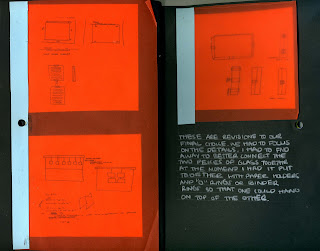 THESE ARE REVISIONS TO OUR
FINAL CHOICE. WE HAD TO FOCUS
ON THE DETAILS. I HAD TO FIND
A WAY TO BETTER CONNECT THE
TWO PIECES OF GLASS TOGETHER
AT THE MOMENT I HAD IT PUT
TOGETHER WITH PAPER HOLDERS
AND "O" RINGS OR BINDER
RINGS SO THAT ONE COULD HANG
ON TOP OF THE OTHER.